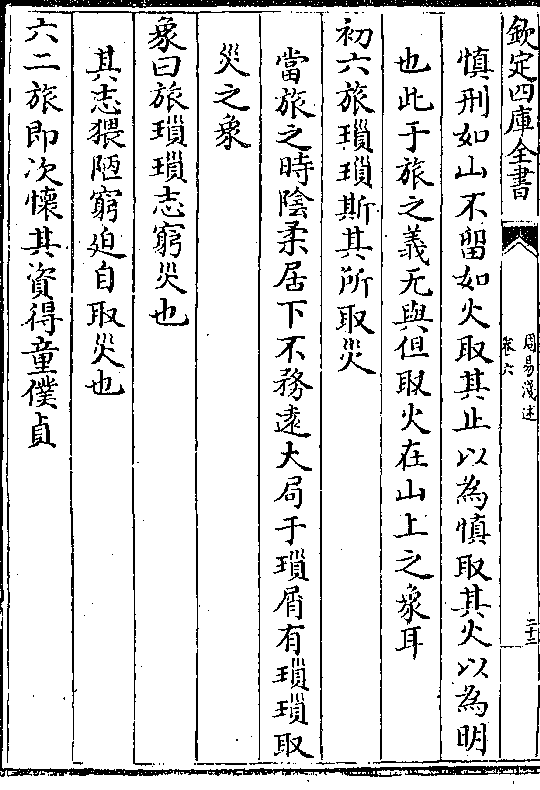 欽定四庫全書
周易淺述
卷六
二十二
慎刑如山不留如火取其止以為慎取其火以為明
也此于旅之義无與但取火在山上之象耳
初六旅瑣瑣斯其所取災
當旅之時陰柔居下不務遠大局于瑣屑有瑣瑣取
災之象
象曰旅瑣瑣志窮災也
其志猥陋窮迫自取災也
六二旅即次懷其資得童僕貞